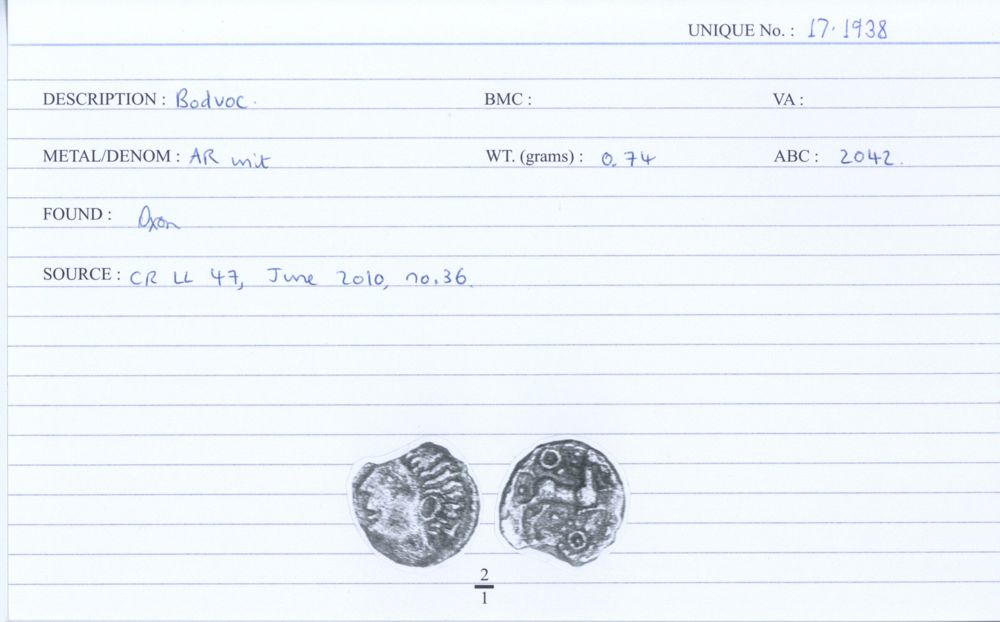 UNIQUE No. : 17.1938
DESCRIPTION : Bodvoc. BMC : VA :
METAL/DENOM : AR unit WT. (grams) : 0.74 ABC : 2042.
FOUND : Oxon
SOURCE : CR LL 47, June 2010, no.36.
2
1